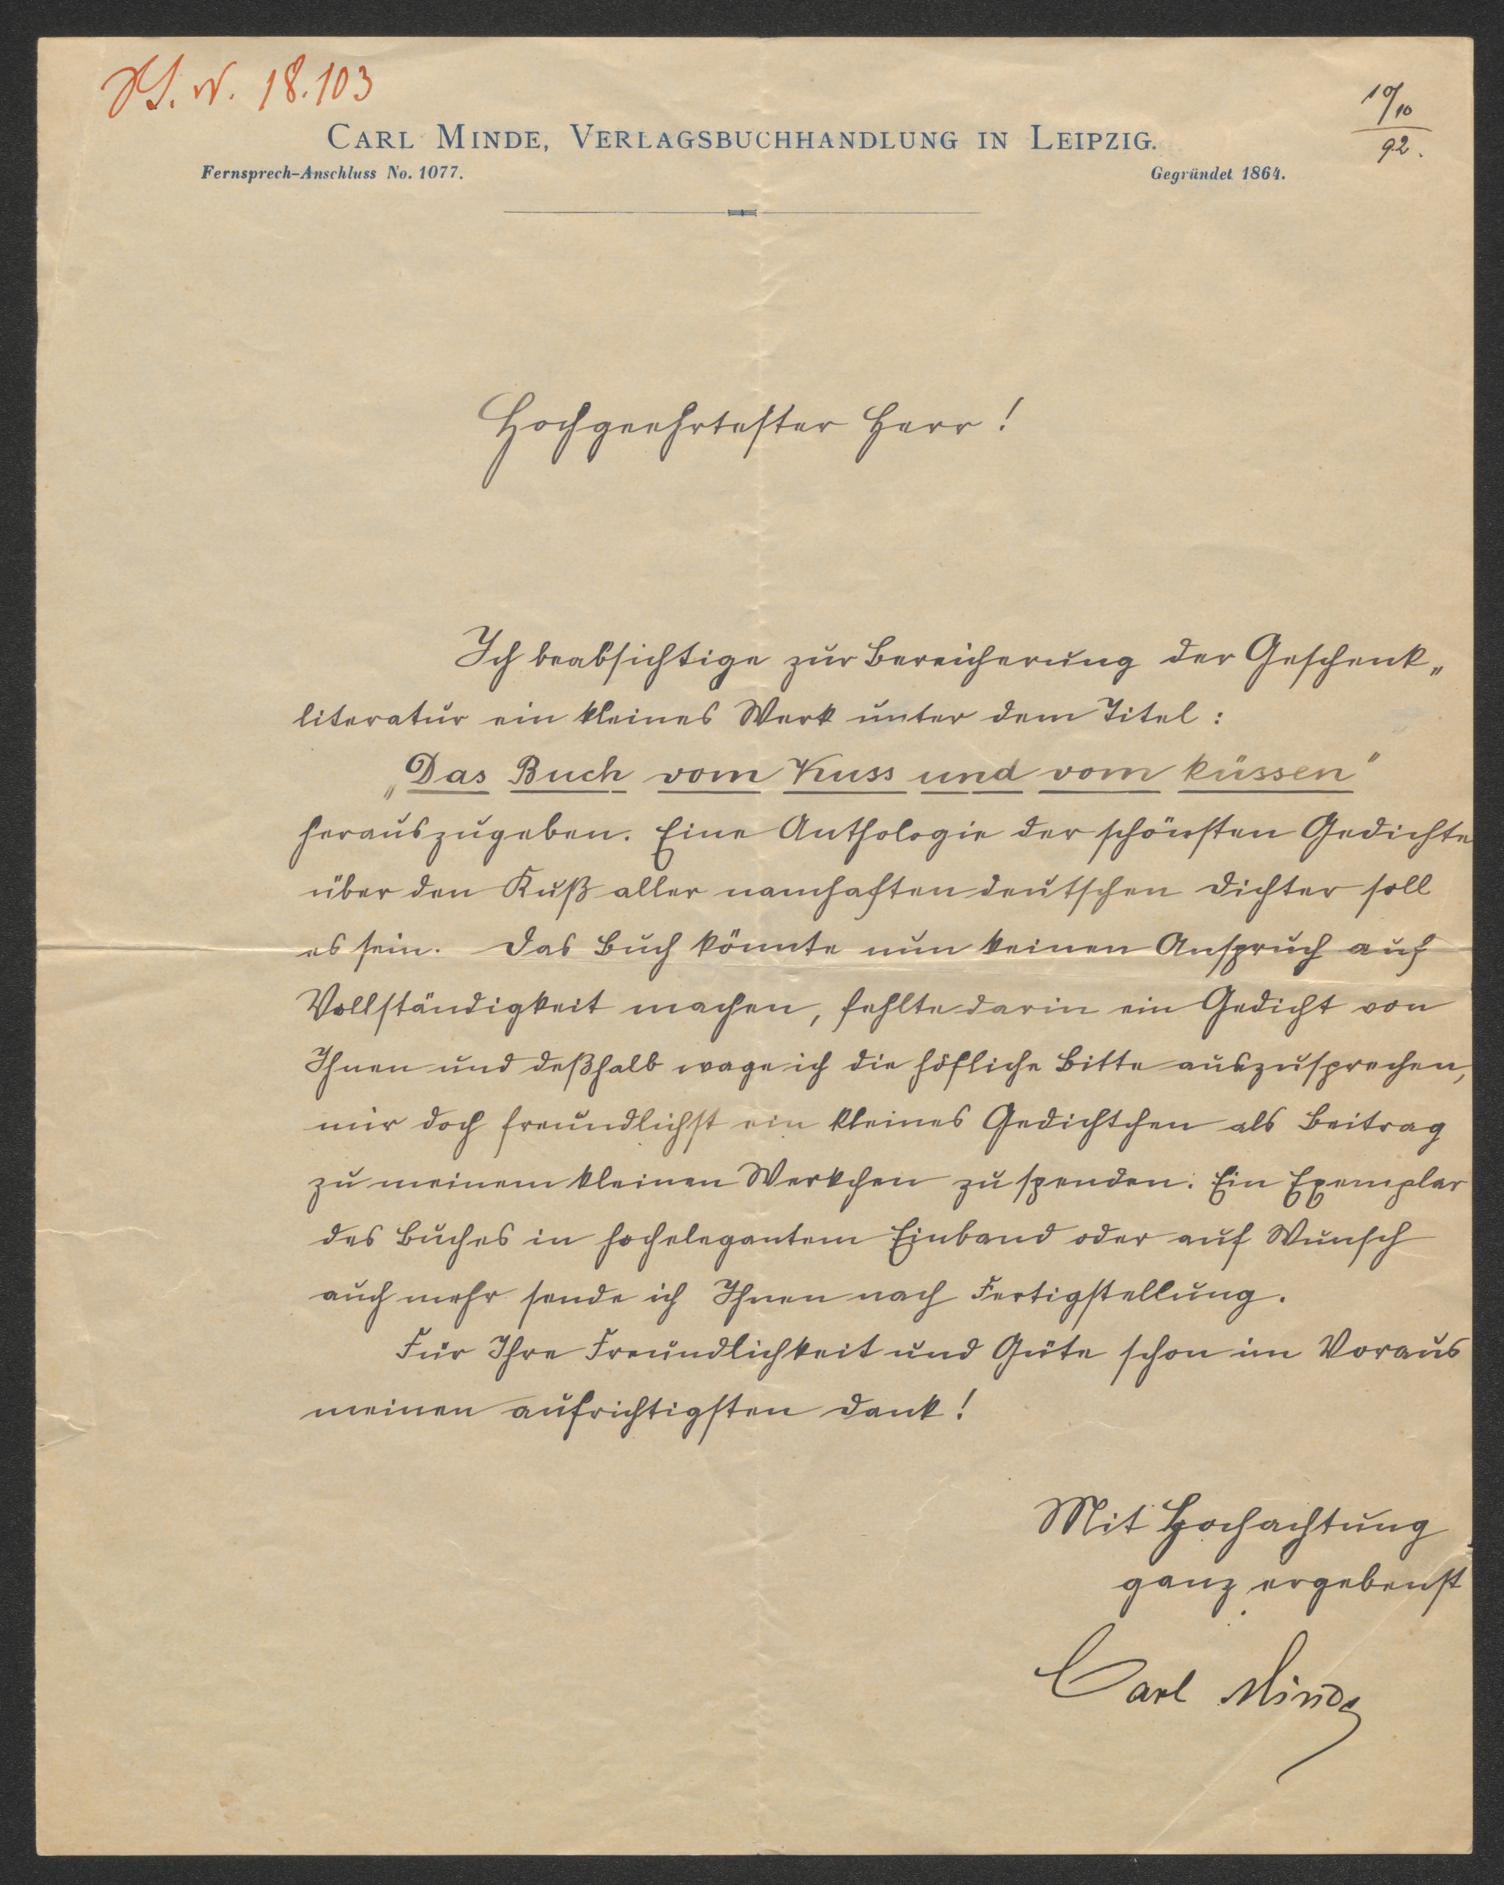 H.S.N. 18.103
10/10
92.
CARL MINDE, VERLAGSBUCHHANDLUNG IN LEIPZIG.
Fernsprech-Anschluss No. 1077.
Gegründet 1864.
Hochgeehrtester Herr!
Ich beabsichtige zur Bereicherung der Geschenk„
literatur ein kleines Werk unter dem Titel:
„Das Buch vom Kuss und vom küssen"
herauszugeben. Eine Anthologie der schönsten Gedichte
über den Kuß aller namhaften deutschen Dichter soll
es sein. Das Buch könnte nun keinen Anspruch auf
Vollständigkeit machen, fehlte darin ein Gedicht von
Ihnen und deßhalb wage ich die höfliche Bitte auszusprechen,
mir doch freundlichst ein kleines Gedichtchen als Beitrag
zu meinem kleinen Werkchen zu spenden. Ein Exemplar
des Buches in hochelegantem Einband oder auf Wunsch
auch mehr sende ich Ihnen nach Fertigstellung.
Für Ihre Freundlichkeit und Güte schon im Voraus
meinen aufrichtigsten Dank!
Mit Hochachtung
ganz ergebenst
Carl Minde